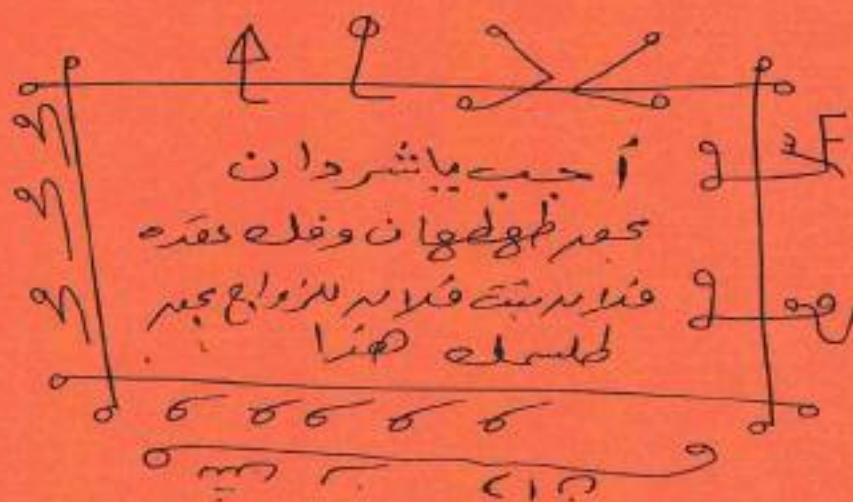 أجب يا شردان
بحق طهطهان وفك عقده
فلانه بنت فلانه للزواج بحق
طلسمك هذا